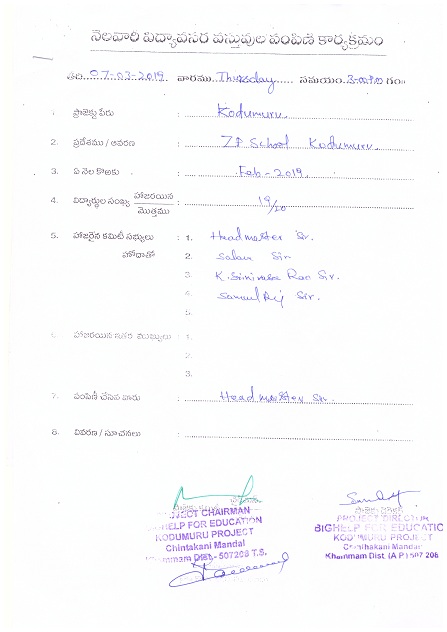 నెలవారి విద్యావసర వస్తువుల పంపిణి కార్యక్రమం
తేది 07-03-2019 వారము Thursday సమయం
1. ప్రాజెక్టు పేరు : Kodumuru.
2. ప్రదేశము / ఆవరణ : ZP School Kodumuru.
3. ఏ నెల కొఱకు : Feb-2019.
4. విద్యార్థుల సంఖ్య హాజరయిన / మొత్తము : 19/20
5. హాజరైన కమిటీ సభ్యులు : 1. Headmaster Sr.
హోదాతో 2. Salau Sir
3. K. Srinivasa Rao Sir.
4. Samuel Raj Sir.
5.
6. హాజరయిన ఇతర ముఖ్యులు : 1.
2.
3.
7. పంపిణీ చేసిన వారు : Headmaster Sr.
8. వివరణ / సూచనలు :
PROJECT CHAIRMAN
BIGHELP FOR EDUCATION
KODUMURU PROJECT
Chintakani Mandal
Khammam Dist - 507208 T.S.
PROJECT DIRECTOR
BIGHELP FOR EDUCATIO
KODUMURU PROJECT
Chinthakani Mandal
Khammam Dist. (A.P.) 507 208